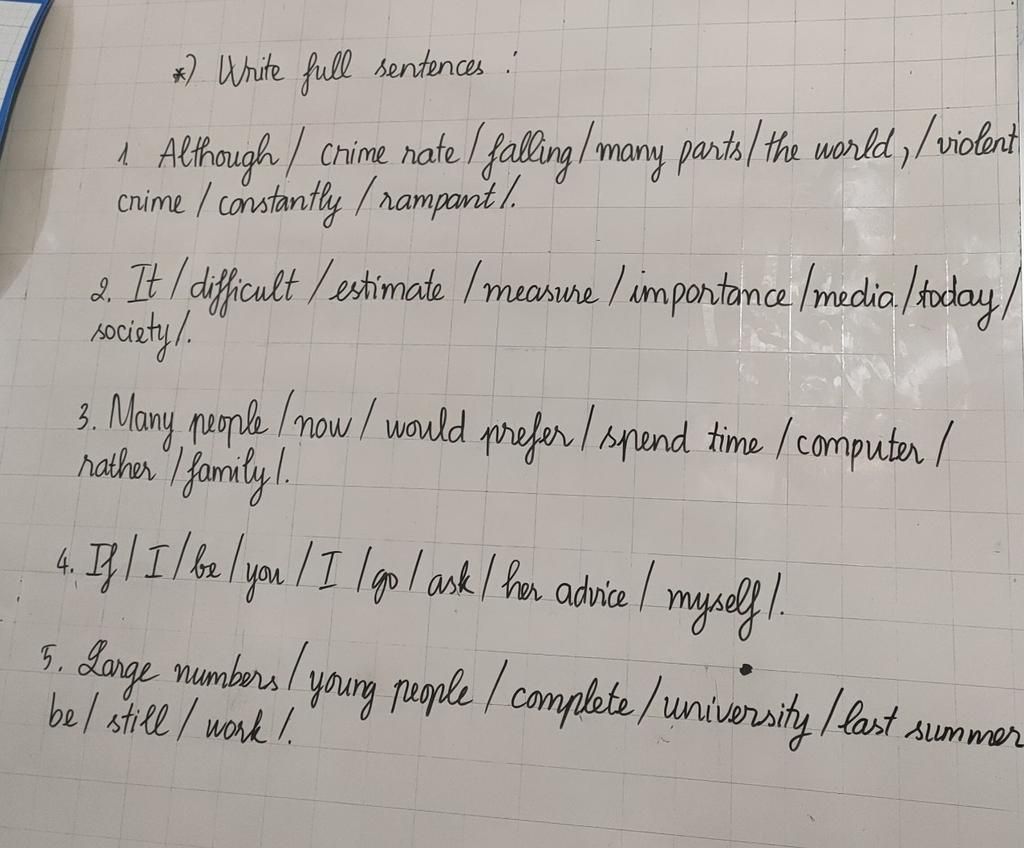 *) Write full sentences :
1 Although / crime rate / falling / many parts / the world, / violent
crime / constantly / rampant /.
2. It / difficult / estimate / measure / importance / media / today /
society /.
3. Many people / now / would prefer / spend time / computer /
rather / family /.
4. If / I / be / you / I / go / ask / her advice / myself /.
5. Large numbers / young people / complete / university / last summer
be / still / work /.